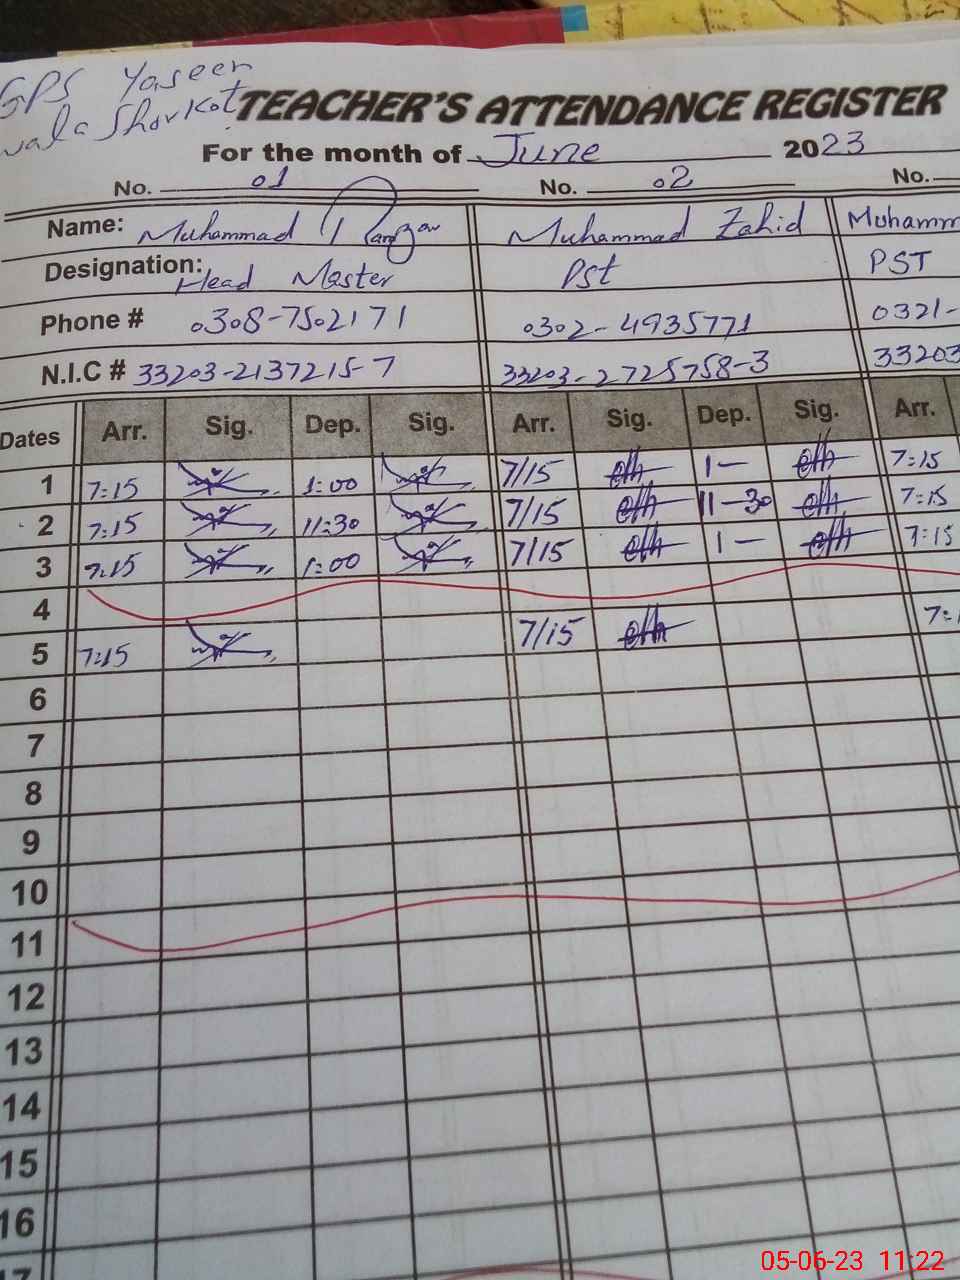 GPS Yaseen
wala Shorkot
TEACHER'S ATTENDANCE REGISTER
For the month of June 2023
No. 01 No. 02 No.
Name: Muhammad Ramzan Muhammad Zahid Muhamm
Designation: Head Master Pst PST
Phone # 0308-7502171 0302-4935771 0321-
N.I.C # 33203-2137215-7 33203-2725758-3 33203
Dates Arr. Sig. Dep. Sig. Arr. Sig. Dep. Sig. Arr.
1 7:15 1:00 7/15 1- 7:15
2 7:15 11:30 7/15 11-30 7:15
3 7:15 1:00 7/15 1- 7:15
4
5 7:15 7/15 7:1
6
7
8
9
10
11
12
13
14
15
16
17
05-06-23 11:22